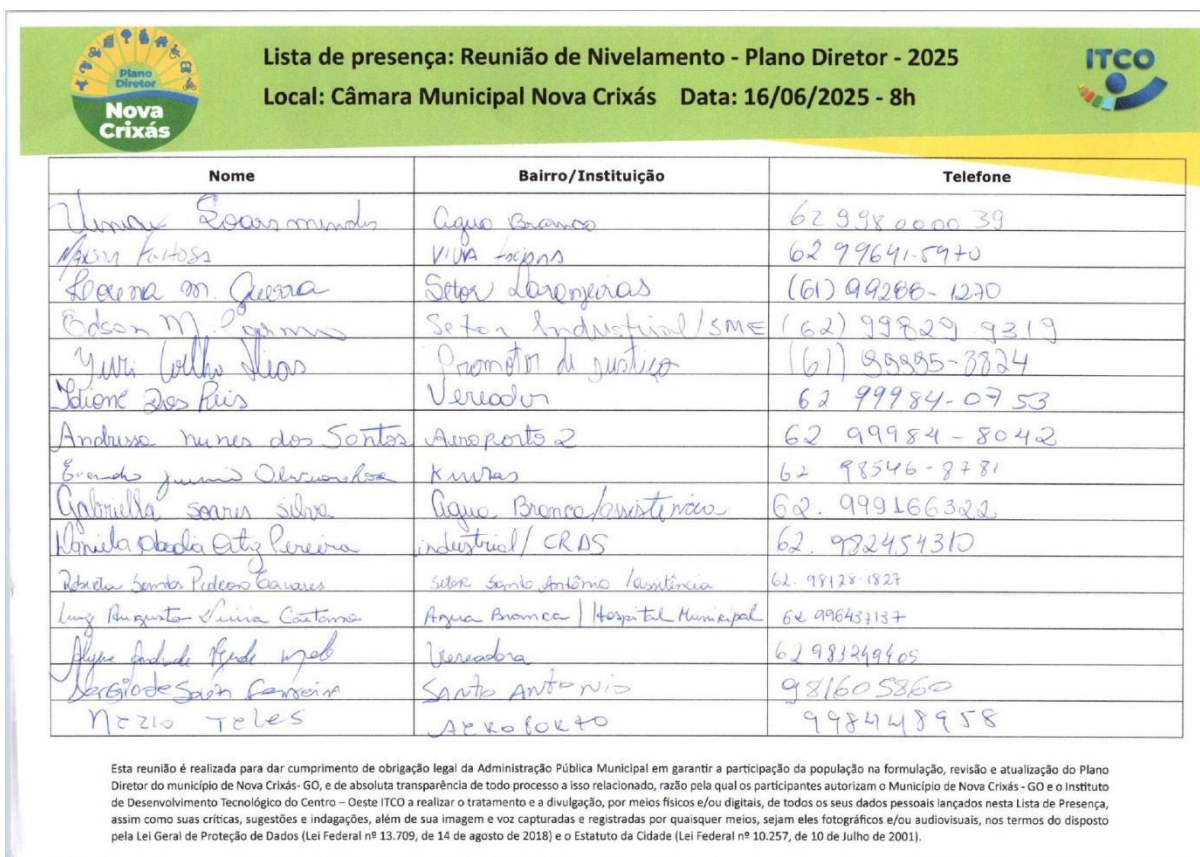 Plano
Diretor
Nova
Crixás
Lista de presença: Reunião de Nivelamento - Plano Diretor - 2025
Local: Câmara Municipal Nova Crixás Data: 16/06/2025 - 8h
ITCO
Nome Bairro/Instituição Telefone
Soares mendes Agua Branca 62 998 0000 39
Feitosa VIVA 62 99641-5970
Lorena M. Guerra Setor Laranjeiras (61) 99288-1270
Edson M. Setor Industrial/SME (62) 99829-9319
Yuri Coelho Dias Promotor de justiça (61) 99995-3824
Idione Dos Reis Vereador 62 99984-0753
Andressa nunes dos Santos Aeroporto 2 62 99984-8042
Junio 62 98546-8781
Gabriella soares silva Agua Branca/assistencia 62. 999166322
Daniela Abadia Ortiz Pereira industrial/ CRAS 62. 982454310
Roberta Santos Pedroso Tavares setor Santo Antônio /assitência 62. 98128-1827
Luiz Augusto Vieira Caetano Agua Branca | Hospital Municipal 62 996437137
Andrade melo Vereadora 62 983249405
Sergio de Ferreira SANTO ANTONIO 981605860
NEZIO TELES AEROPORTO 998448958
Esta reunião é realizada para dar cumprimento de obrigação legal da Administração Pública Municipal em garantir a participação da população na formulação, revisão e atualização do Plano
Diretor do município de Nova Crixás- GO, e de absoluta transparência de todo processo a isso relacionado, razão pela qual os participantes autorizam o Município de Nova Crixás - GO e o Instituto
de Desenvolvimento Tecnológico do Centro – Oeste ITCO a realizar o tratamento e a divulgação, por meios físicos e/ou digitais, de todos os seus dados pessoais lançados nesta Lista de Presença,
assim como suas críticas, sugestões e indagações, além de sua imagem e voz capturadas e registradas por quaisquer meios, sejam eles fotográficos e/ou audiovisuais, nos termos do disposto
pela Lei Geral de Proteção de Dados (Lei Federal nº 13.709, de 14 de agosto de 2018) e o Estatuto da Cidade (Lei Federal nº 10.257, de 10 de Julho de 2001).